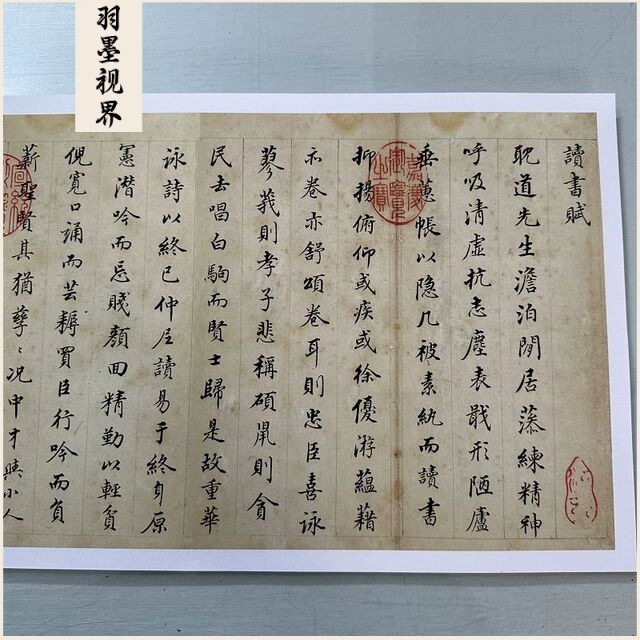 羽墨视界
讀書賦
耽道先生澹泊閒居藻練精神
呼吸清虛抗志塵表戢形陋廬
垂蕙帳以隐几被素紈而讀書
抑揚俯仰或疾或徐優游蘊藉
亦卷亦舒頌卷耳則忠臣喜詠
蓼莪則孝子悲稱碩鼠則貪
民去唱白駒而賢士歸是故重華
詠詩以終已仲尼讀易于終身原
憲潛吟而忘賤顏回精勤以輕貧
倪寬口誦而芸耨買臣行吟而負
薪聖賢其猶孳〻況中才與小人
嘉慶御覽之寶